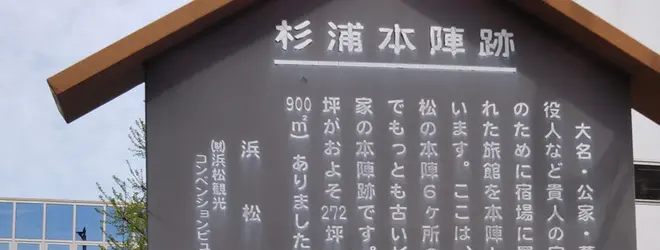 杉浦本陣跡
大名・公家・
役人など貴人の
のために宿場に
れた旅館を本陣
います。ここは、
松の本陣6ヶ所
でもっとも古い
家の本陣跡です。
坪がおよそ272坪
900㎡)ありました
浜松
㈶浜松観光
コンベンションビュ